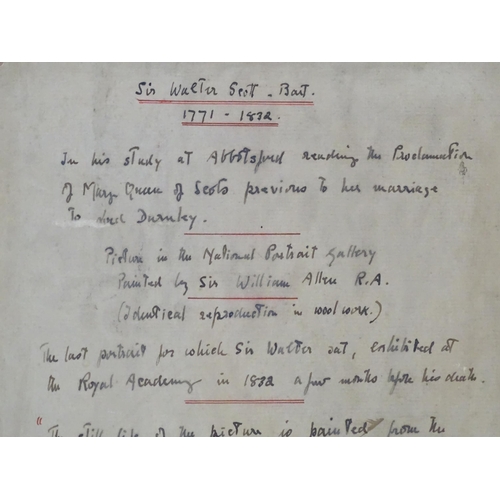 Sir Walter Scott - Bart.
1771 - 1832.
In his study at Abbotsford reading the Proclamation
of Mary Queen of Scots previous to her marriage
to Lord Darnley.
Picture in the National Portrait Gallery
Painted by Sir William Allen R.A.
(Identical reproduction in wool work.)
The last portrait for which Sir Walter sat, exhibited at
the Royal Academy in 1832 a few months before his death.
"The still life of the picture is painted from the